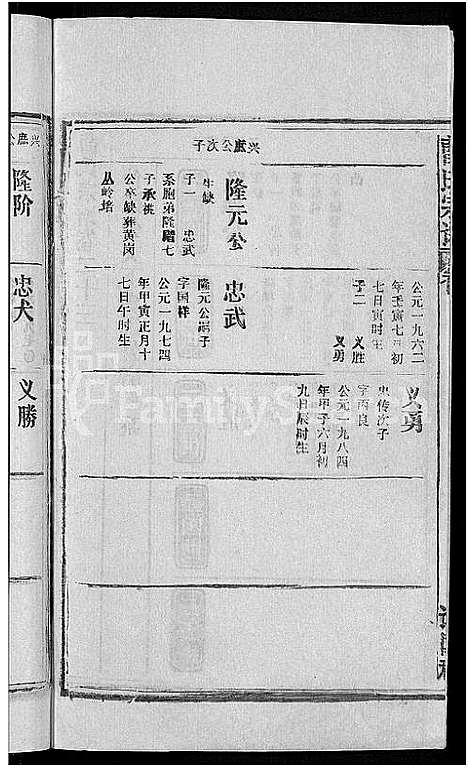 兴庶公次子
隆元公
生缺
子一 忠武
系胞弟隆阶七
子承祧
公卒缺葬黄岗
丛岭培
公元一九六二
年壬寅七月初
七日寅时生
子二 义胜
义勇
忠武
隆元公嗣子
字国祥
公元一九七四
年甲寅正月十
七日午时生
义勇
忠传次子
字丙良
公元一九八四
年甲子六月初
九日辰时生
隆阶
忠犬
义勝
FamilySearch